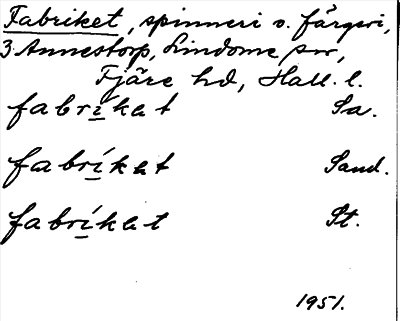 Fabriket, spinneri o. färgeri,
3 Annestorp, Lindome snr,
Fjäre hd, Hall. l.
fabríkat Sa.
fabríkat Sand.
fabríkat St.
1951.